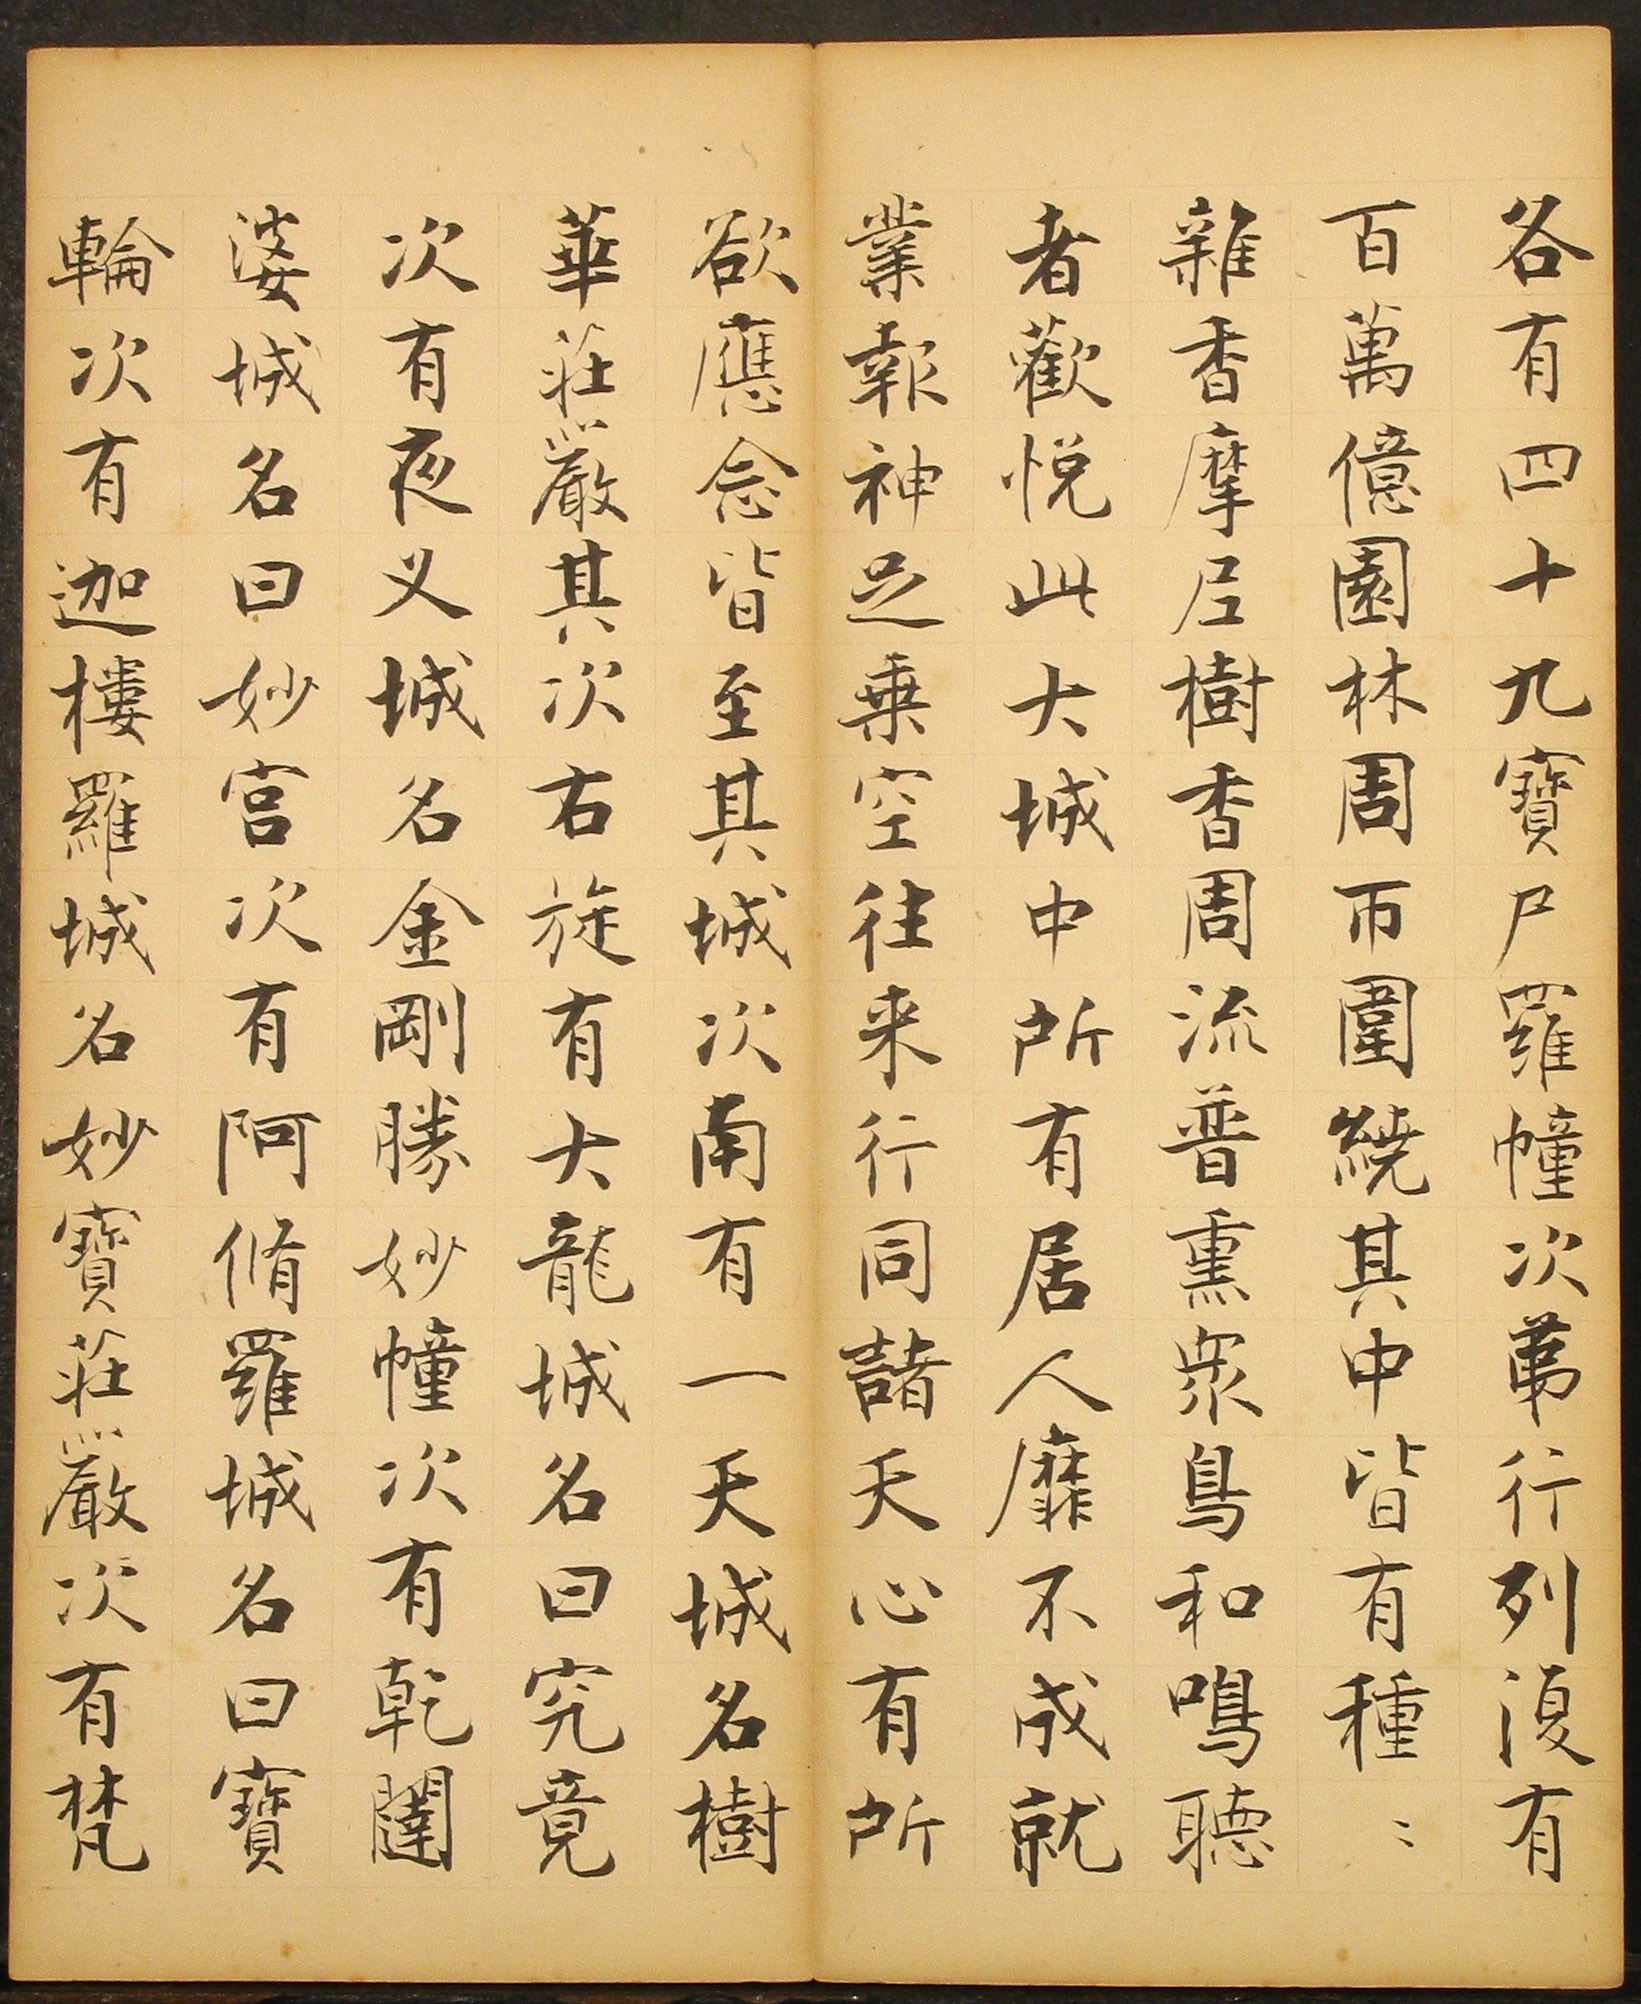 各有四十九寶尸羅幢次第行列復有
百萬億園林周帀圍繞其中皆有種〻
雜香摩尼樹香周流普熏眾鳥和鳴聽
者歡悅此大城中所有居人靡不成就
業報神足乗空往来行同諸天心有所
欲應念皆至其城次南有一天城名樹
華莊嚴其次右旋有大龍城名曰究竟
次有夜叉城名金剛勝妙幢次有乾闥
婆城名曰妙宮次有阿脩羅城名曰寶
輪次有迦樓羅城名妙寶莊嚴次有梵